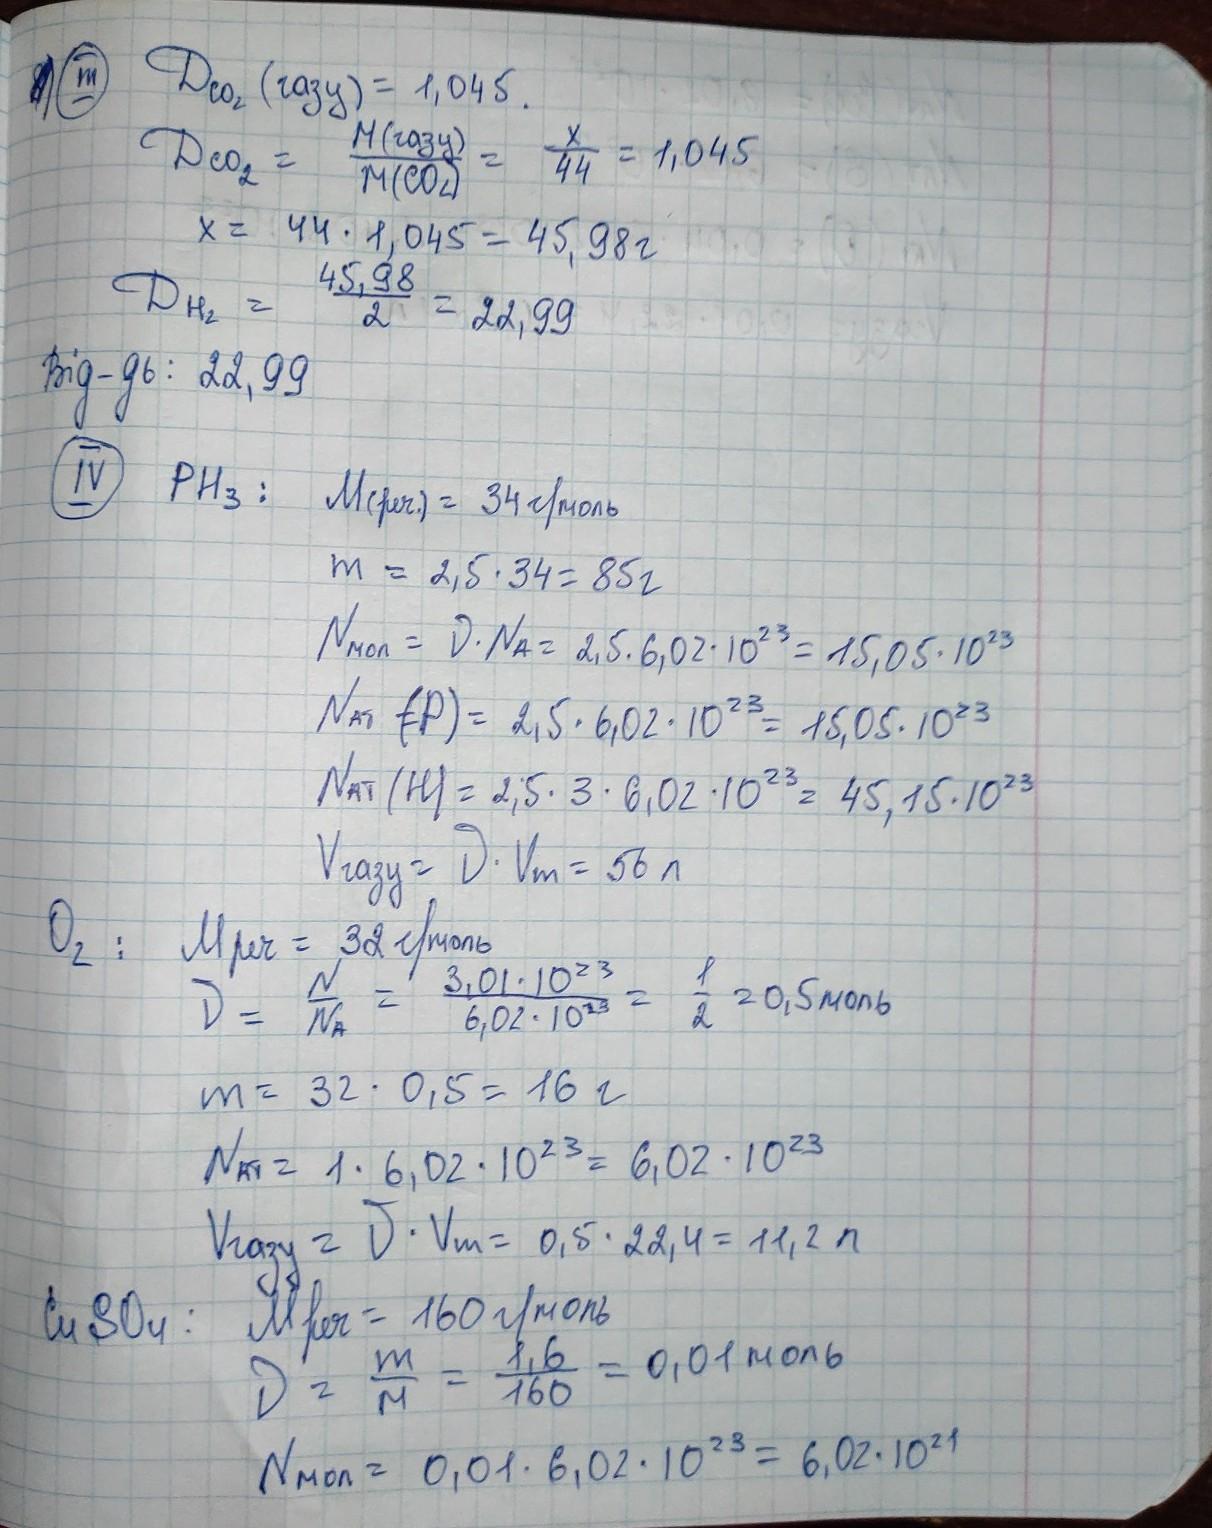 III D_CO₂ (газу) = 1,045.
D_CO₂ = M(газу)/M(CO₂) = x/44 = 1,045
x = 44 · 1,045 = 45,98 г
D_H₂ = 45,98/2 = 22,99
Від-дь: 22,99
IV PH₃: M(реч.) = 34 г/моль
m = 2,5 · 34 = 85 г
Nмол = ν · N_A = 2,5 · 6,02 · 10²³ = 15,05 · 10²³
Nат (P) = 2,5 · 6,02 · 10²³ = 15,05 · 10²³
Nат (H) = 2,5 · 3 · 6,02 · 10²³ = 45,15 · 10²³
Vгазу = ν · Vm = 56 л
O₂: Mреч = 32 г/моль
ν = N/N_A = 3,01 · 10²³/6,02 · 10²³ = 1/2 = 0,5 моль
m = 32 · 0,5 = 16 г
Nат = 1 · 6,02 · 10²³ = 6,02 · 10²³
Vгазу = ν · Vm = 0,5 · 22,4 = 11,2 л
CuSO₄: Mреч = 160 г/моль
ν = m/M = 1,6/160 = 0,01 моль
Nмол = 0,01 · 6,02 · 10²³ = 6,02 · 10²¹